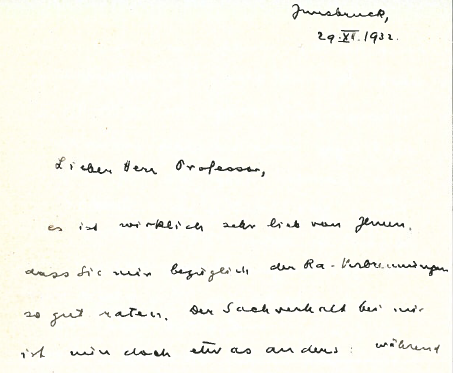 Innsbruck,
29.XI.1932.
Lieber Herr Professor,
es ist wirklich sehr lieb von Ihnen,
dass Sie mir bezüglich der Ra-Verbrennungen
so gut raten. Der Sachverhalt bei mir
ist nun doch etwas anders: während